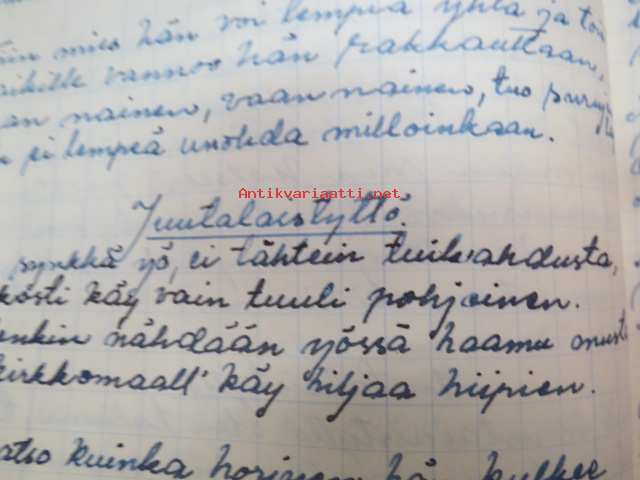 mies hän voi lempiä yhtä ja
vannoo hän rakkauttaan,
nainen, vaan nainen, tuo
ei lempeä unohda milloinkaan.
Antikvariaatti.net
Juutalaistyttö.
synkkä yö, ei tähtein tuikahdusta,
käy vain tuuli pohjoinen.
nähdään yössä haamu
kirkkomaall' käy hiljaa hiipien.
kuinka